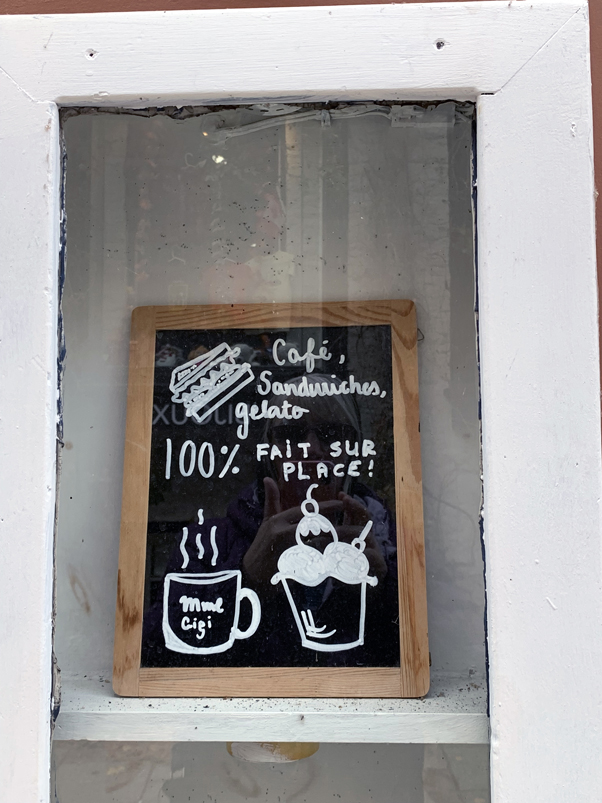 Café,
Sandwiches,
gelato
100% FAIT SUR
PLACE!
Mme
Gigi